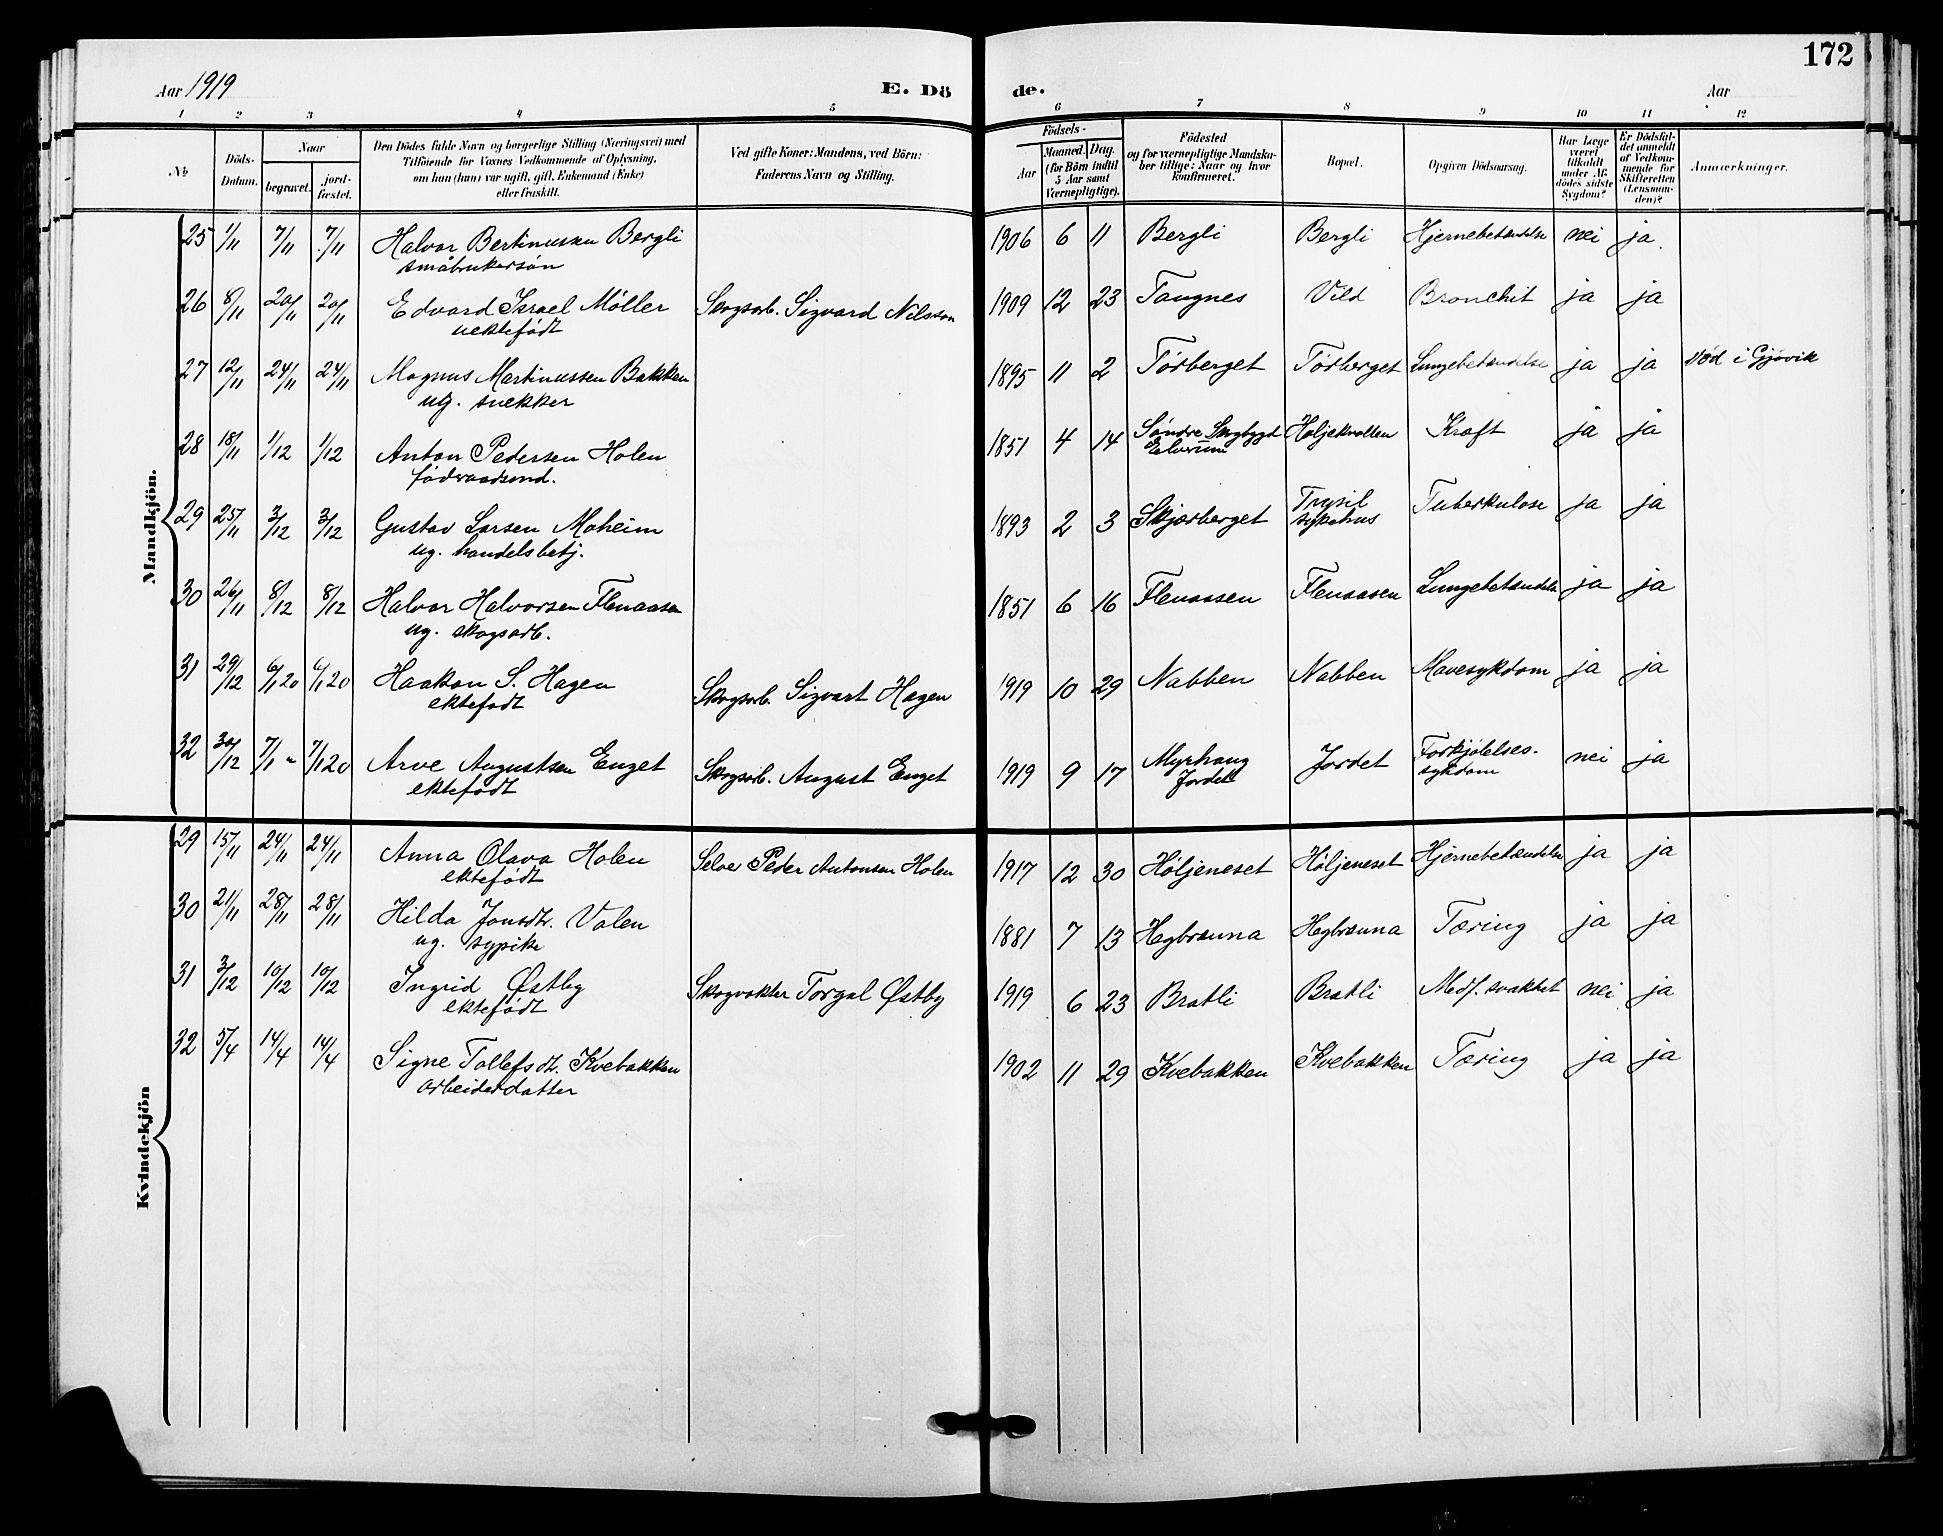 172
Aar 1919 E. Dö de. Aar
1 2 3 4 5 6 7 8 9 10 11 12
No
Döds-Datum.
Naar
begravet. jord-fæstet.
Den Dödes fulde Navn og borgerlige Stilling (Næringsvei) med
Tilföiende for Voxnes Vedkommende af Oplysning,
om han (hun) var ugift, gift, Enkemand (Enke)
eller fraskilt.
Ved gifte Koner: Mandens, ved Börn:
Faderens Navn og Stilling.
Födsels-
Aar Maaned. Dag.
(for Börn indtil
5 Aar samt
Værnepligtige).
Födested
og for værnepligtige Mandska-
ber tillige: Naar og hvor
konfirmeret.
Bopæl.
Opgiven Dödsaarsag.
Har Læge
været
tilkaldt
under Af-
dödes sidste
Sygdom?
Er Dödsfal-
det anmeldt
af Vedkom-
mende for
Skifteretten
(Lensman-
den)?
Anmærkninger.
Mandkjön.
25 1/11 7/11 7/11 Halvor Bertinussen Bergli 1906 6 11 Bergli Bergli Hjernebetændelse nei ja.
småbrukersøn
26 8/11 20/11 20/11 Edvard Israel Möller Skogsarb. Sigvard Nilsson 1909 12 23 Tangnes Vild Bronchit ja ja
uektefödt
27 12/11 24/11 24/11 Magnus Martinussen Bakken 1895 11 2 Törberget Törberget Lungebetændelse ja ja död i Gjövik
ug. snekker
28 18/11 1/12 1/12 Anton Pedersen Holen 1851 4 14 Söndre Skogbygd Höljekvollen Kræft ja ja
födraadsmd. Elverum
29 25/11 3/12 3/12 Gustav Larsen Moheim 1893 2 3 Skjærberget Trysil sykehus Tuberkulose ja ja
ug. handelsbetj.
30 26/11 8/12 8/12 Halvor Halvorsen Flenaasen 1851 6 16 Flenaasen Flenaasen Lungebetændelse ja ja
ug. skogsarb.
31 29/12 6/1 20 6/1 20 Haakon S. Hagen Skogsarb. Sigvart Hagen 1919 10 29 Nabben Nabben Mavesykdom ja ja
ektefödt
32 30/12 7/1 " 7/1 20 Arve Augustsen Enget Skogsarb. August Enget 1919 9 17 Myrhaug Jordet Jordet Forkjölelses-sykdom nei ja
ektefödt
Kvindekjön
29 15/11 24/11 24/11 Anna Olava Holen Selve Peder Antonsen Holen 1917 12 30 Höljeneset Höljeneset Hjernebetændelse ja ja
ektefödt
30 21/11 28/11 28/11 Hilda Jonsdtr. Valen 1881 7 13 Hegbrænna Hegbrænna Tæring ja ja
ug. sypike
31 3/12 10/12 10/12 Ingrid Østby Skogvokter Torgal Østby 1919 6 23 Bratli Bratli Medf. svakhet nei ja
ektefödt
32 5/4 14/4 14/4 Signe Tollefsdtr. Kvebakken 1902 11 29 Kvebakken Kvebakken Tæring ja ja
arbeiderdatter